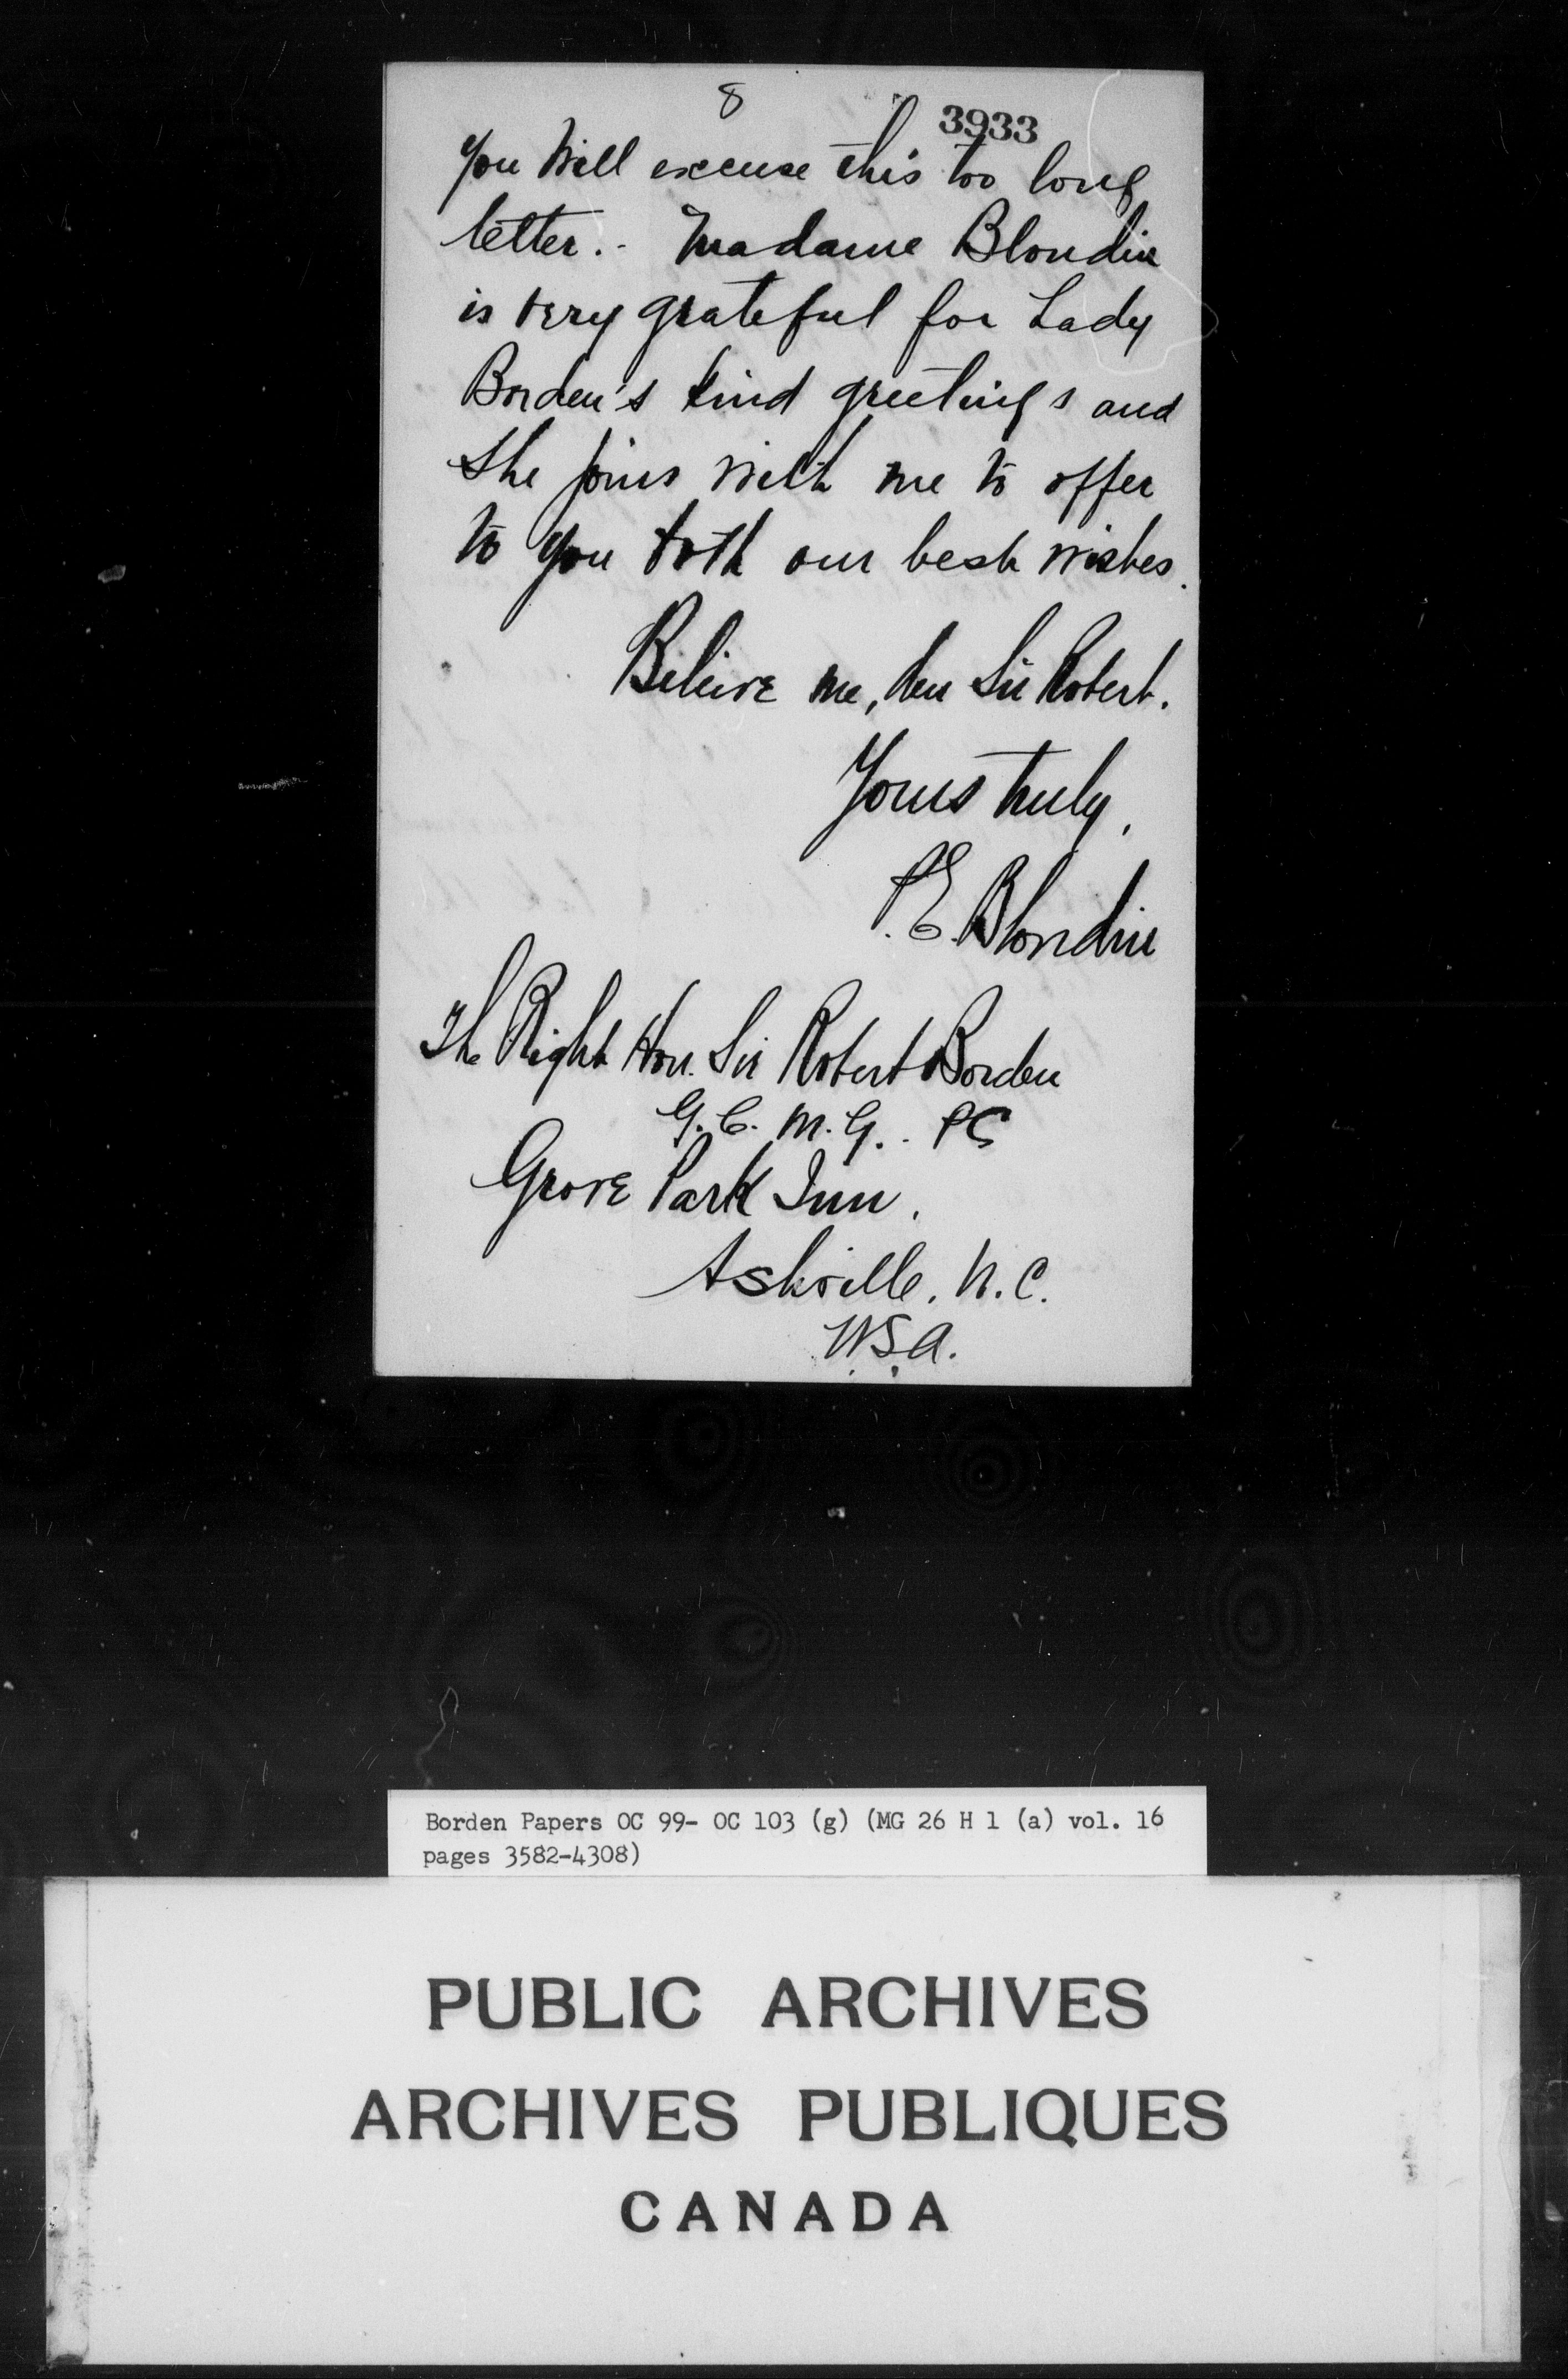 8
3933
You will excuse this too long
letter.- Madame Blondin
is very grateful for Lady
Borden's kind greetings and
she joins with me to offer
to you both our best wishes.
Beleive me, dear Sir Robert.
Yours truly,
P.E. Blondin
The Right Hon. Sir Robert Borden
G.C.M.G.. PC
Grove Park Inn.
Ashville, N.C.
U.S.A.
Borden Papers OC 99- OC 103 (g) (MG 26 H 1 (a) vol. 16
pages 3582-4308)
PUBLIC ARCHIVES
ARCHIVES PUBLIQUES
CANADA